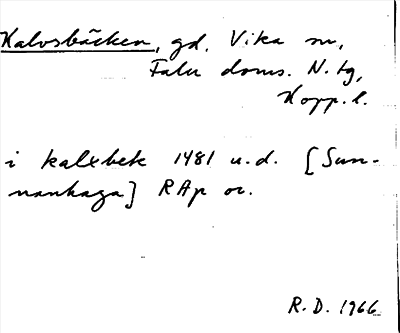 Kalvsbäcken, gd. Vika sn,
Falu doms. N. tg,
Kopp. l.
i kalxbek 1481 u.d. [Sun-
nanhaga] RAp or.
R. D. 1966